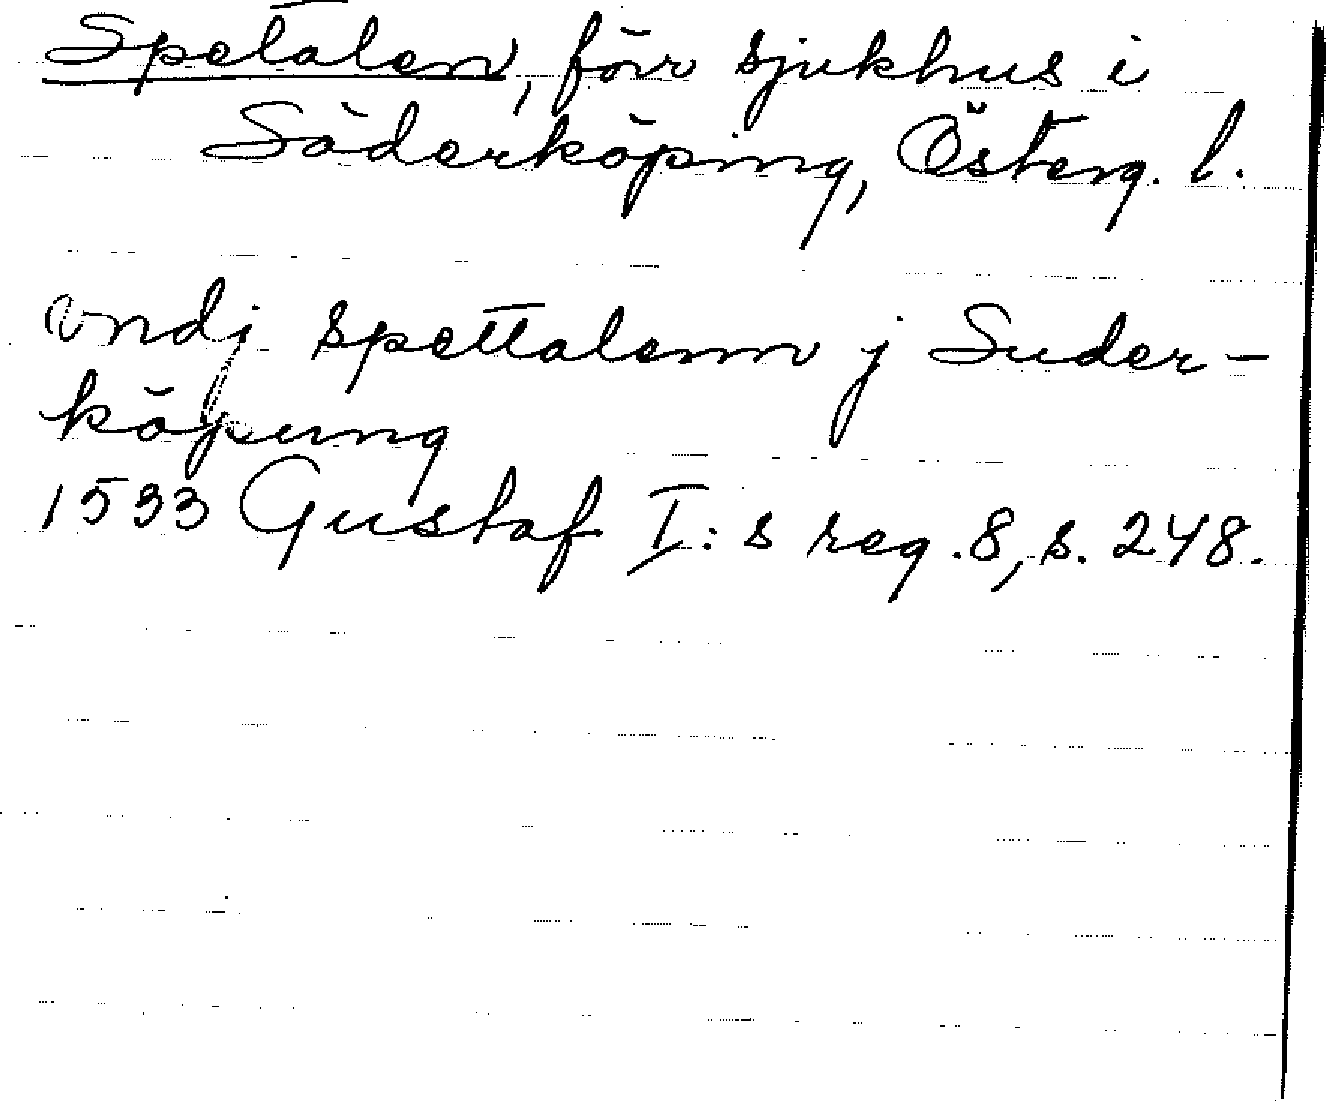 Spetalen, förr sjukhus i
Söderköping, Österg. l.
vndj spettalenn j Suder-
köpung
1533 Gustaf I:s reg. 8, s. 248.